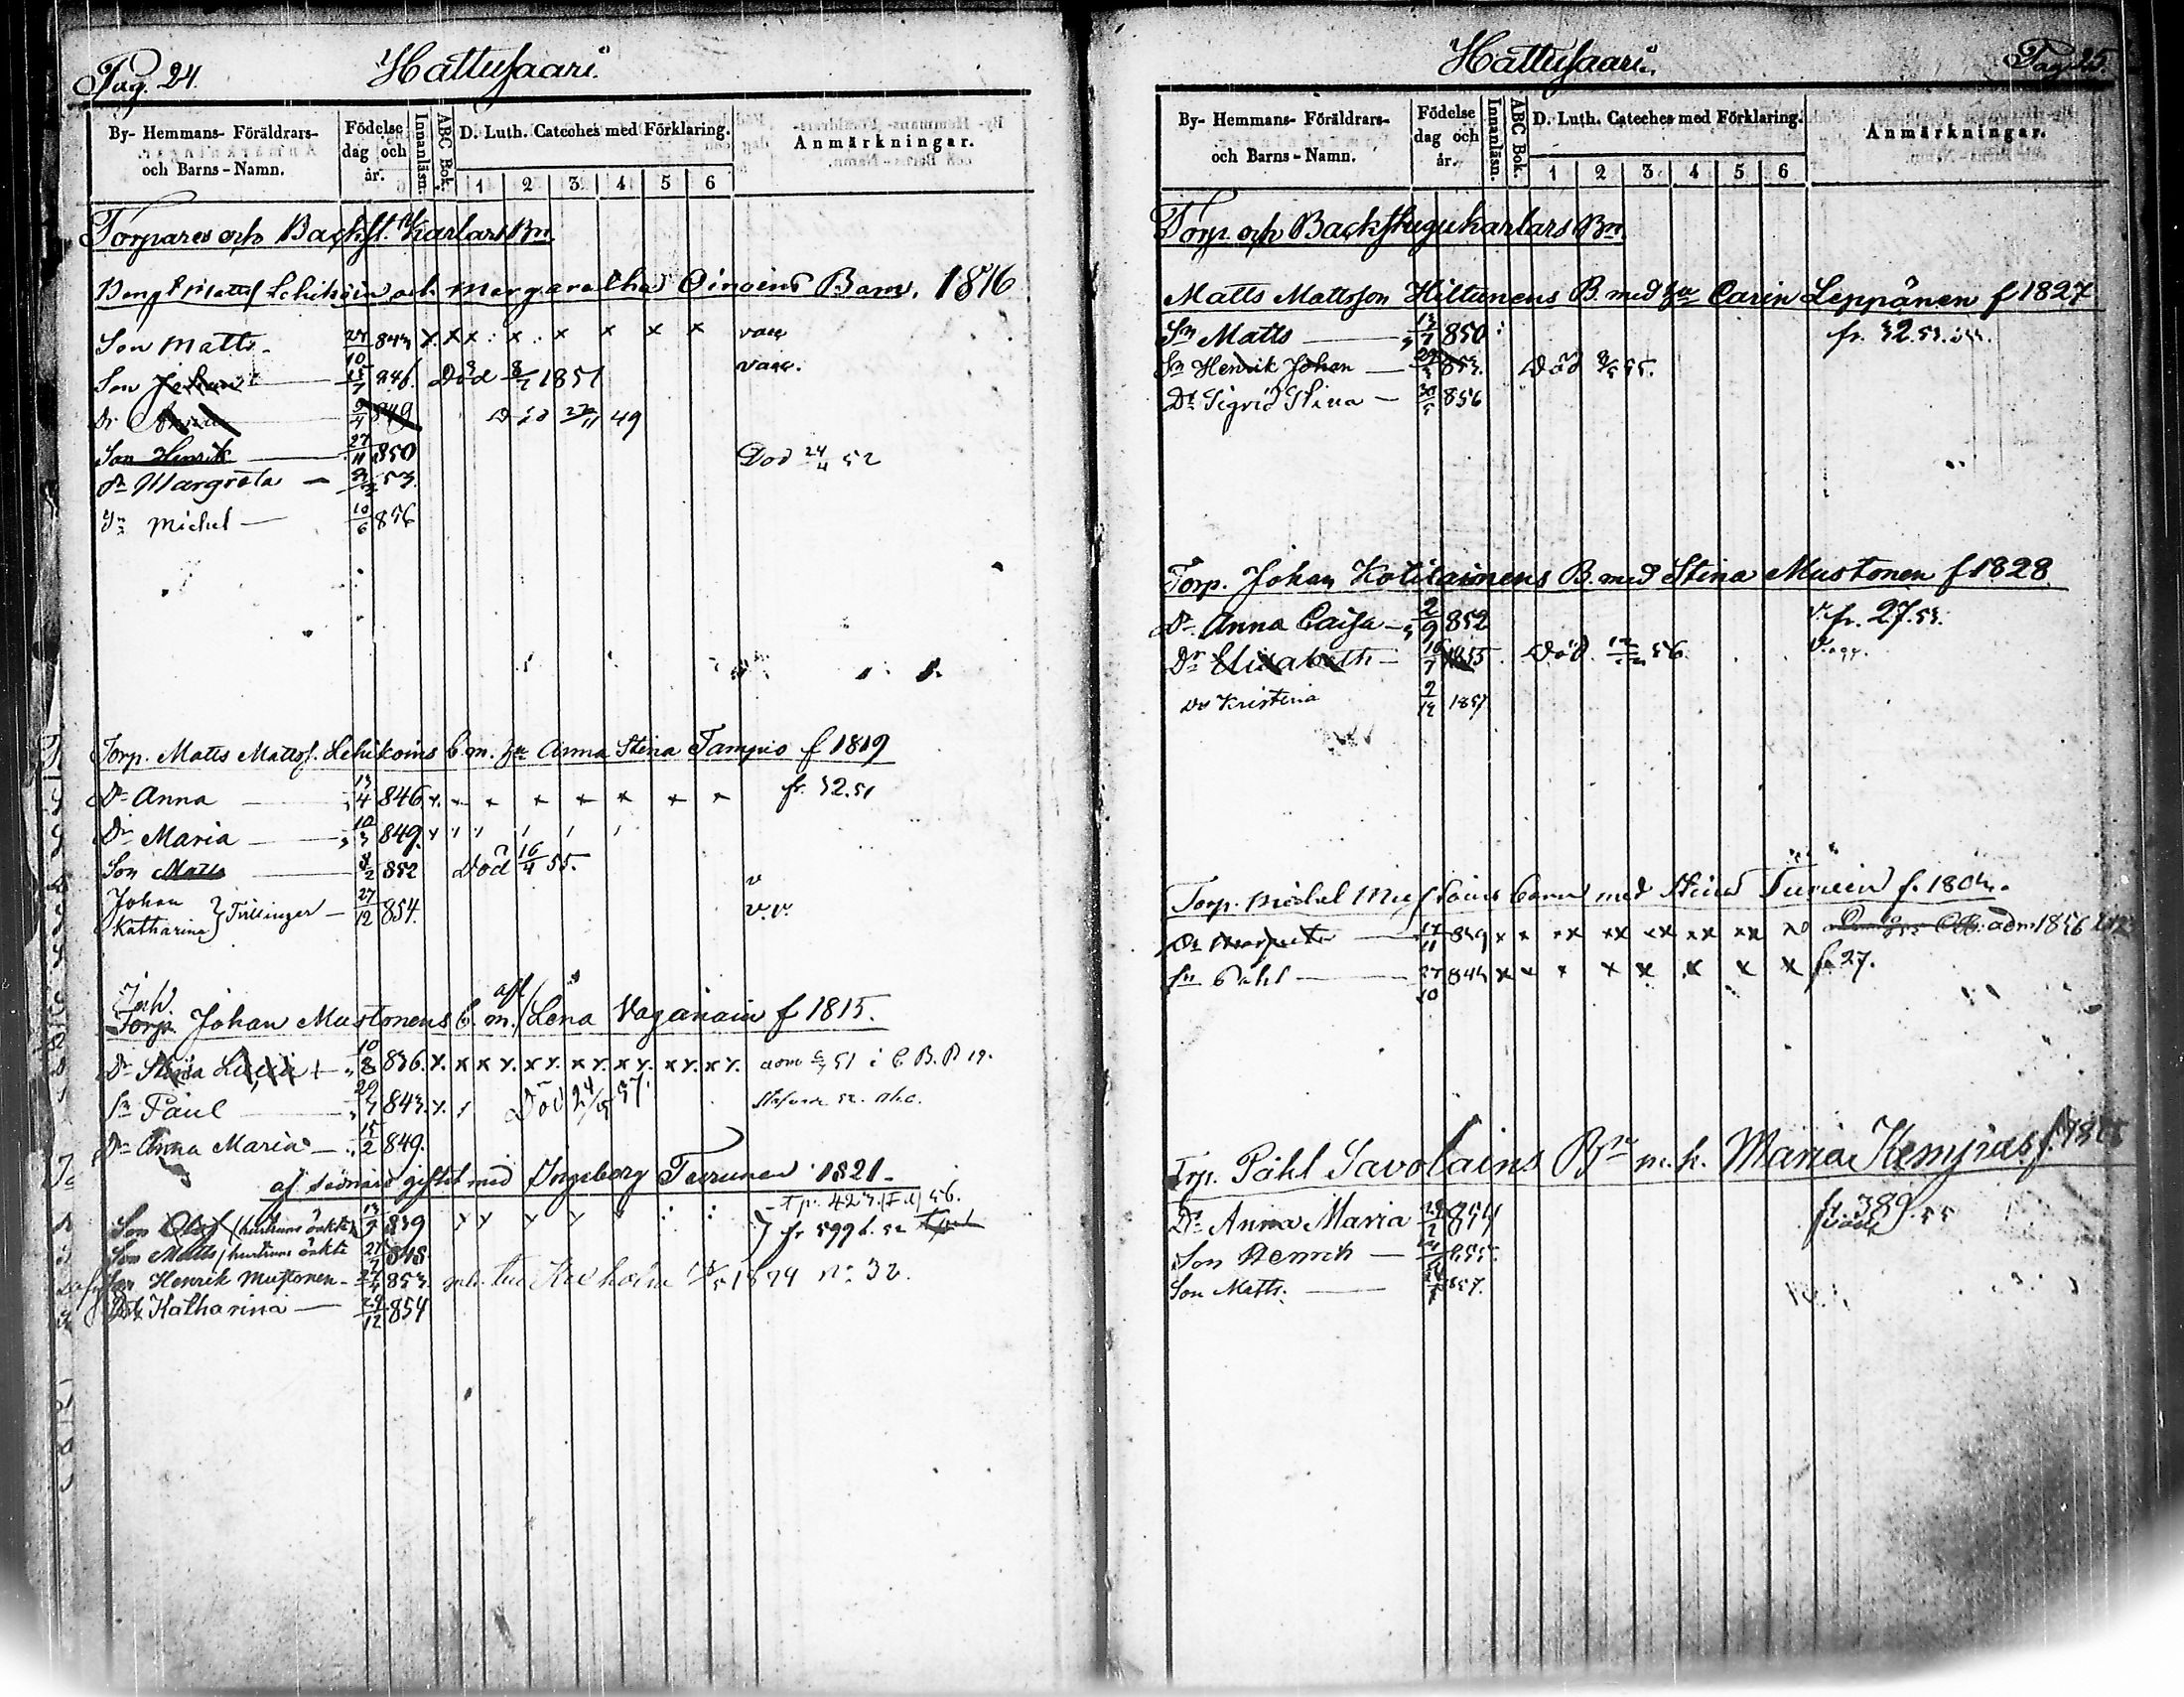 Pag. 24.
Hattusaari
By- Hemmans- Föräldrars- och Barns-Namn.
Födelse dag och år.
Innanläsn.
ABC Bok.
D. Luth. Cateches med Förklaring.
1 2 3 4 5 6
Anmärkningar.
Torpares och Backst. Karlars Bn.
Bengt Mattss Lehikoin och Margaretha Oinoins Barn. 1816
Son Matts 27/10 843 x x x x x x x x vacc
Son Johan 15/7 846. Död 8/7 1851 vacc.
Dr Anna 9/4 849 Död 49
Son Henrik 27/11 850 Död 24/4 52
Dr Margreta 53.
Sn Michel 10/6 856
Torp. Matts Mattss. Lehikoins b. m. hu Anna Stina Tampio f 1819
Dr Anna 13/4 846 x x x x x x x fr. 32.51
Dr Maria 10/3 849.
Son Matts 8/2 852 Död 16/4 55.
Johan v
Katharina } Tvillingar 27/12 854. v.v.
Inh.
Torp. Johan Mustonens b. m. afl/ Lena Vaganain f 1815.
Dr Stina Lucia + 10/8 836. x. x x x. x x. x x. x x. x x. x x. adm 51 i C. B. P 19.
Sn Paul 29/7 843. x. Död 24/5 57.
Dr Anna Maria 15/2 849.
af sednare giftet med Ingeborg Turunen 1821.
Son Olof (hustruns oäkta) 13/7 839 fr 599 b. 52
Son Matts / hustruns oäkta 27/7 848
Son Henrik Mustonen 27/4 853. 1874 No 32.
Dr Katharina 29/12 854
Hattusaari.
Pag. 25.
By- Hemmans- Föräldrars- och Barns-Namn.
Födelse dag och år.
Innanläsn.
ABC Bok.
D. Luth. Cateches med Förklaring.
1 2 3 4 5 6
Anmärkningar.
Torp. och Backstugukarlars Bn.
Matts Mattsson Hiltunens B. med hu Carin Leppänen f 1827
Sn Matts 13/7 850 fr. 32.53.
Sn Henrik Johan 853. Död 55.
Dr Sigrid Stina 30/5 856
Torp. Johan Kotilainens B. med Stina Mustonen f 1828.
Dr Anna Caisa 2/9 852 v. fr. 27.53.
Dr Elisabeth 16/7 1855. Död 56.
Dr Kristina 9/12 1857
Torp. Michel barn med Stina Turuin f. 1804.
Dr 17/11 839 x x xx xx xx xx xx adm 1856
Sn Påhl 27/10 844 x x x x x x x x fr 27.
Trp. Påhl Savolains Bn m. h. Maria Kempias f.
Dr Anna Maria 854 fr. 389.55
Son Henrich 855.
Son Matts. 857.